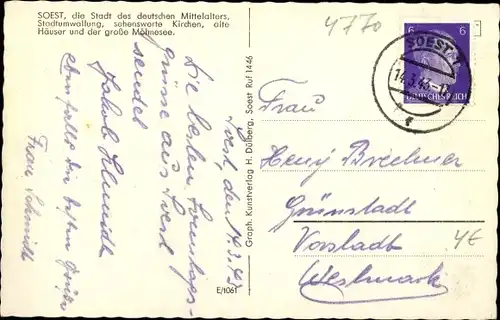 SOEST, die Stadt des deutschen Mittelalters,
Stadtumwallung, sehenswerte Kirchen, alte
Häuser und der große Möhnesee.
4770
SOEST 1
14.3.43
6 6
DEUTSCHES REICH
Graph. Kunstverlag H. Dülberg, Soest Ruf 1446
E/1061
Soest, den 14.3.43
Die besten Sonntags-
grüsse aus Soest
sendet
Jakob Schmidt
Ebenfalls die besten Grüße
Frau Schmidt
Frau
Henny
Grünstadt
Vorstadt
Westmark
4€